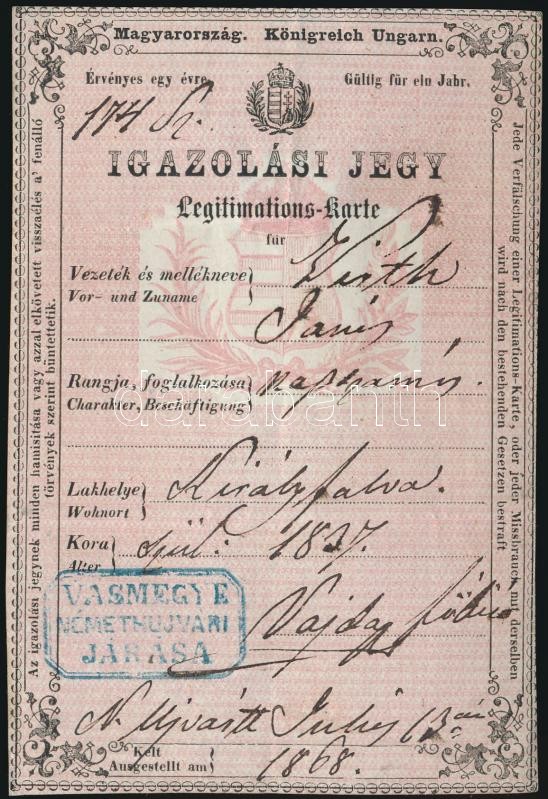 Magyarország. Königreich Ungarn.
Érvényes egy évre
Gültig für ein Jahr.
174
IGAZOLÁSI JEGY
Legitimations-Karte
für
Vezeték és mellékneve
Vor- und Zuname
Wirth
János
Rangja, foglalkozása
Charakter, Beschäftigung
napszámos.
Lakhelye
Wohnort
Királyfalva.
Kora
Alter
szül: 1837.
VASMEGYE
NÉMETHUJVÁRI
JÁRÁSA
Vajda
N. Ujvárt Julius 13án
Kelt
Ausgestellt am
1868.
Az igazolási jegynek minden hamisitása vagy azzal elkövetett visszaélés a' fenálló
törvények szerint büntettetik.
Jede Verfälschung einer Legitimations-Karte, oder jeder Missbrauch mit derselben
wird nach den bestehenden Gesetzen bestraft
darabanth